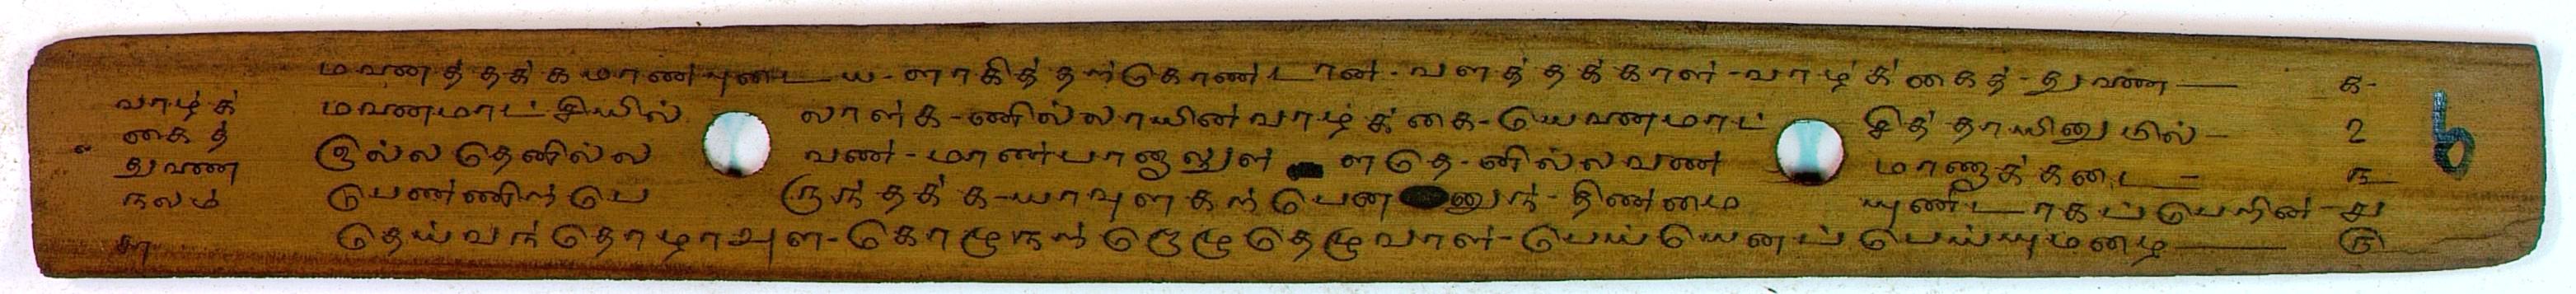 மனைத்தக்கமாண்புடைய-ளாகித்தற்கொண்டான்-வளத்தக்காள்-வாழ்க்கைத்-துணை — ௧-
மனைமாட்சியில் லாள்க-ணில்லாயின்வாழ்க்கை-யெனைமாட் சித்தாயினுமில்- ௨
இல்லதெனில்ல வண்-மாண்பானாலுள் ளதெ-னில்லவண மாணாக்கடை — ௩
பெண்ணிற்பெ ருந்தக்க-யாவுளகற்பென னுந்-திண்மை யுண்டாகப்பெறின்-௪
தெய்வந்தொழாஅள-கொழுநற்றொழுதெழுவாள்-பெய்யெனப்பெய்யுமழை — ௫
வாழ்க்
கைத்
துணை
நலம்
6